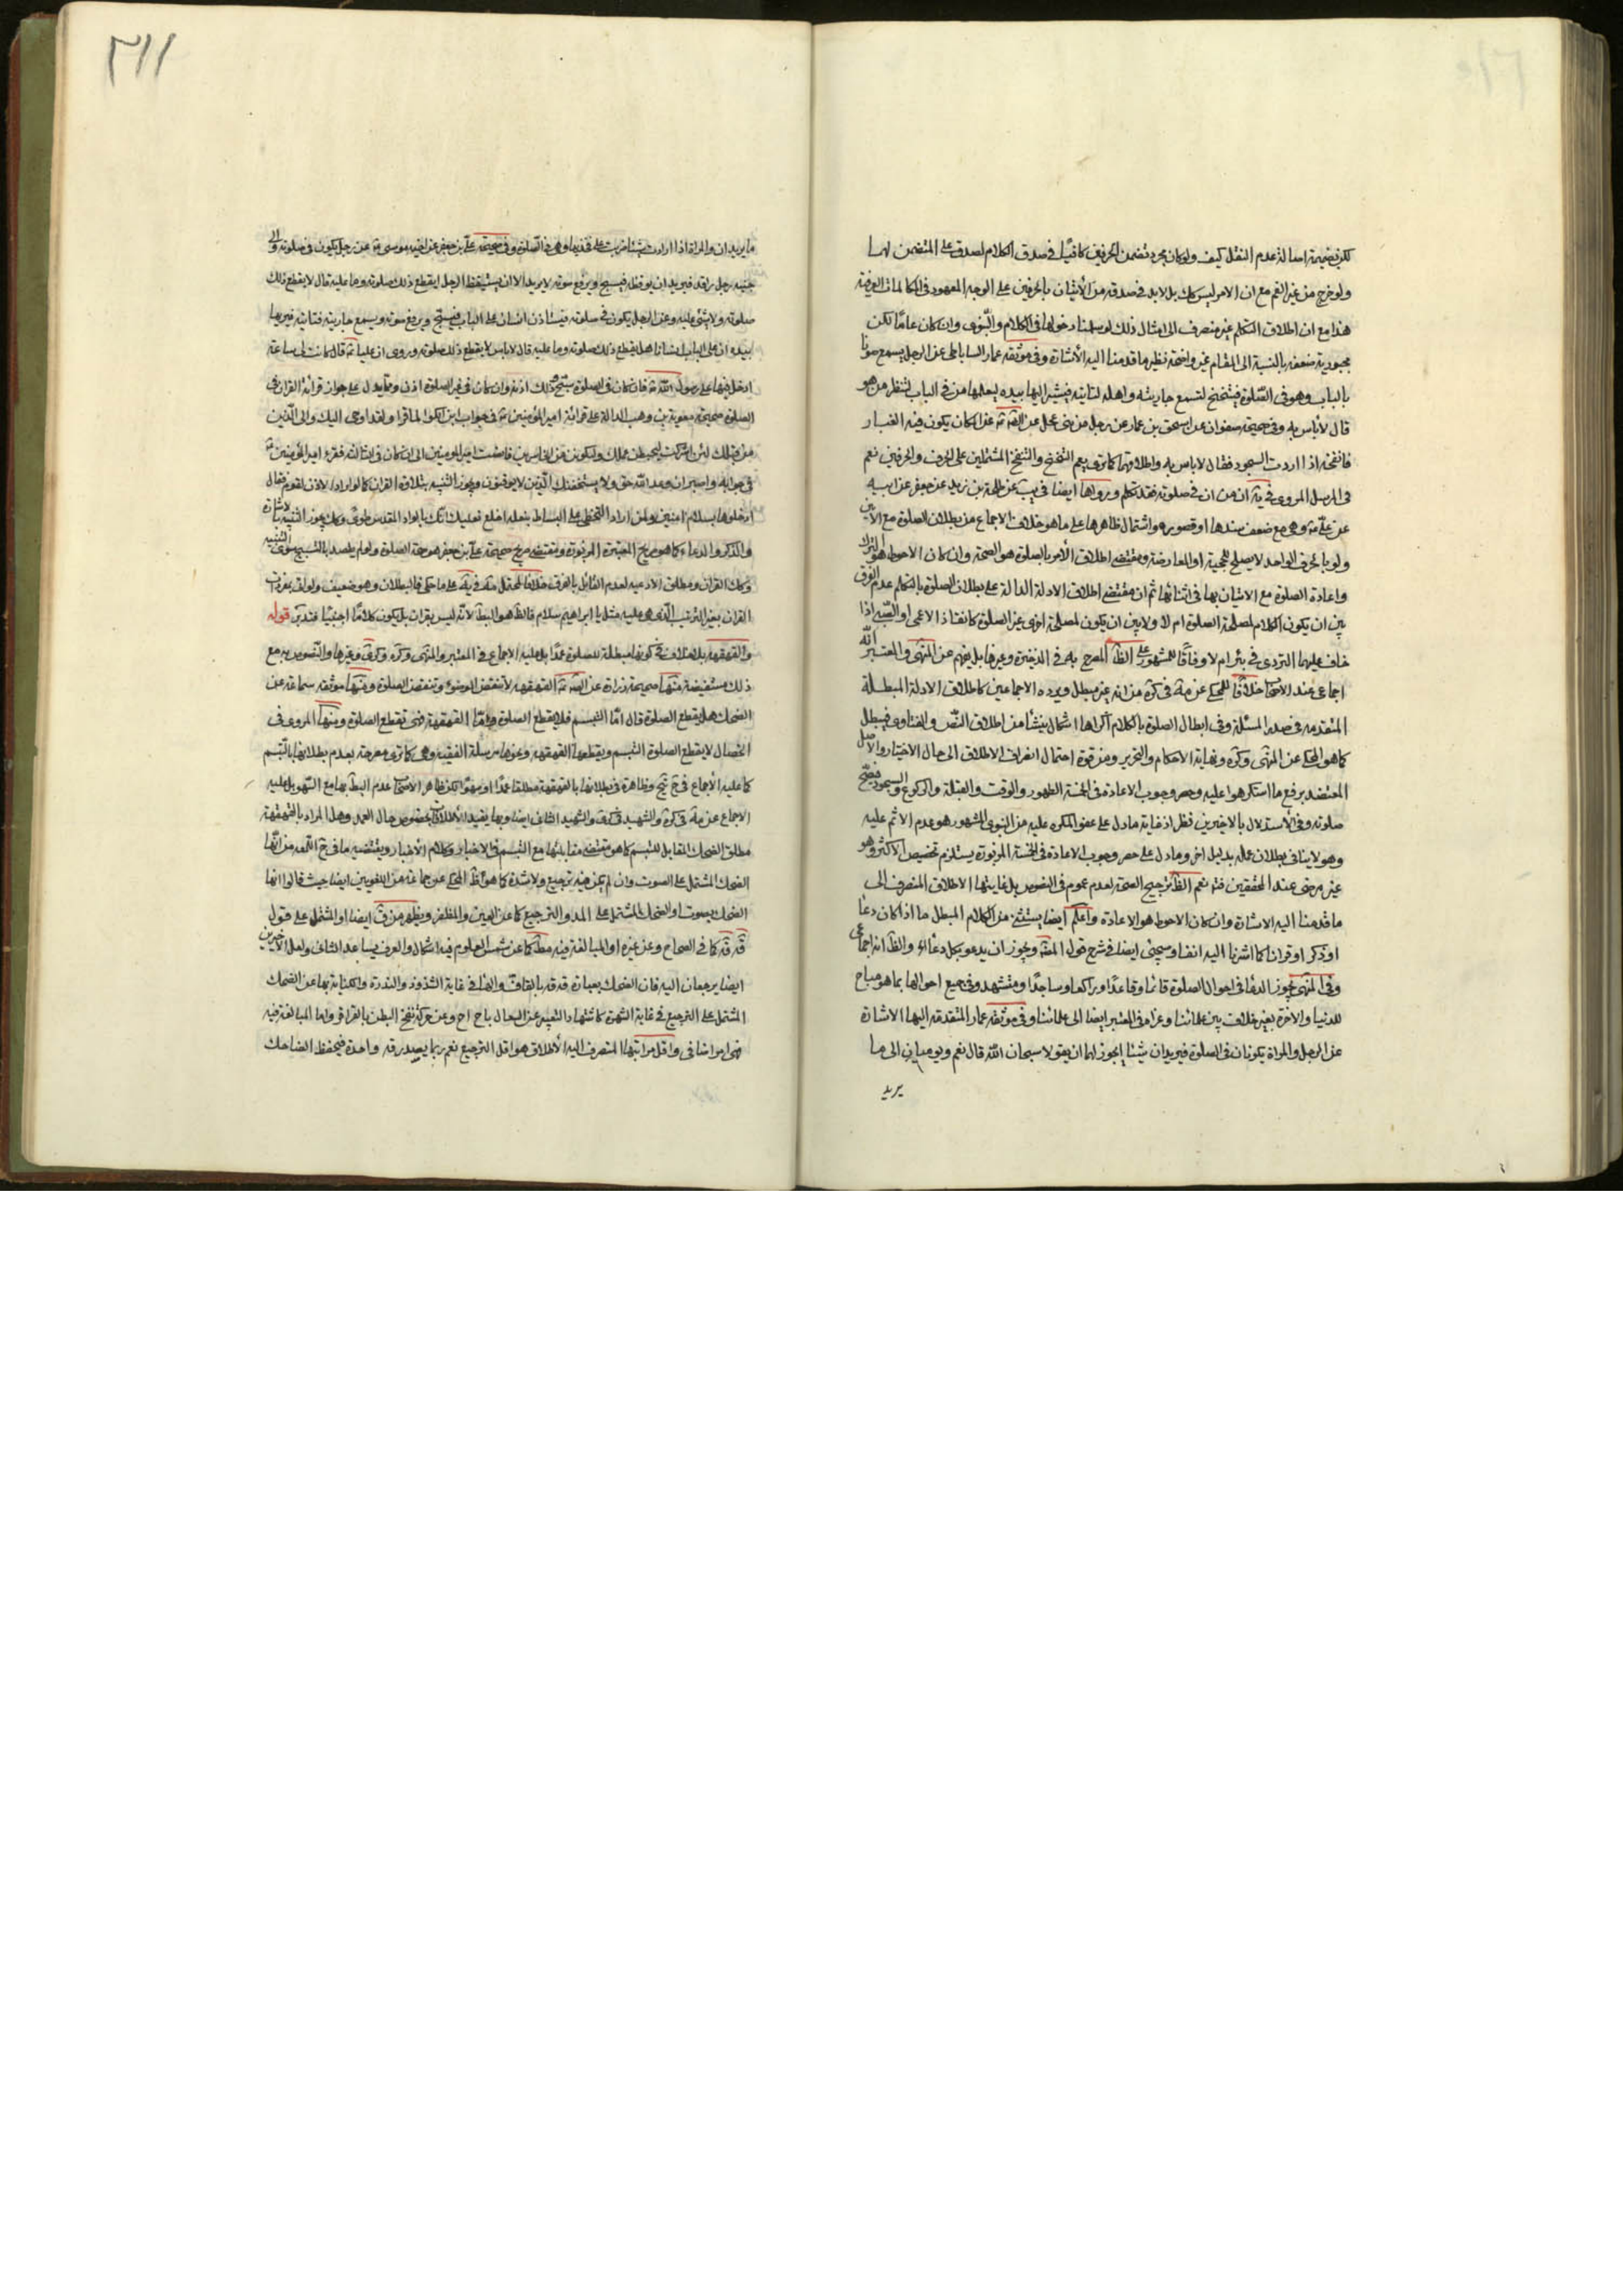 لكن بضميمة اصالة عدم النقل كيف ولو كان مجرد تضمن الحرفين كافيا في صدق الكلام لصدق على المتضمن لهما
ولو خرج من غير الفم مع ان الامر ليس كك بل لابد في صدقه من الأتيان بالحرفين على الوجه المعهود في الكلمات العرفية
هذا مع ان اطلاق التكلم غير منصرف الى امثال ذلك لو سلمنا دخولها في الكلام والنبوى وان كان عاما لكن
مجبورية ضعفه بالنسبة الى المقام غير واضحة نظير ما قدمنا اليه الأشارة وفي موثقة عمار الساباطى عن الرجل يسمع صوتا
بالباب وهو في الصلوة فيتنحنح لتسمع جاريته واهله لتاتيه فيشير اليها بيده ليعلمها من في الباب لتنظر من هو
قال لا بأس به وفي صحيحة صفوان عن اسحق بن عمار عن رجل من بنى عجل عن المكان يكون فيه الغبار
فانفخه اذا اردت السجود فقال لا باس به واطلاقهما كما ترى يعم التنحنح والنفخ المشتملين على الحرف والحرفين نعم
في المرسل المروى في ان من ان في صلوته فقد تكلم ورواها ايضا في يب عن طلحة بن زيد عن جعفر عن ابيه
عن على وهو مع ضعف سندها او قصوره واشتمال ظاهرها على ما هو خلاف الاجماع من بطلان الصلوة مع الأنين
ولو بالحرف الواحد لا يصلح للحجية او المعارضة ومقتضى اطلاق الأمر بالصلوة هو الصحة وان كان الاحوط هو الترك
واعادة الصلوة مع الاتيان بها في اثنائها ثم ان مقتضى اطلاق الادلة الدالة على بطلان الصلوة بالتكلم عدم الفرق
بين ان يكون الكلام لمصلحة الصلوة ام لا ولا بين ان يكون لمصلحة اخرى غير الصلوة كانقاذ الاعمى او الصبى اذا
خاف عليهما التردى في بئر ام لا وفاقا للمشهور على الظ المصرح به في الذخيرة وغيرها بل يفهم عن المنتهى والمعتبر انه
اجماعى عند الاصحاب خلافا للمحكى عن في كره من انه غير مبطل ويرده الاجماعين كاطلاق الادلة المبطلة
المتقدمة في صدر المسئلة وفي ابطال الصلوة بالكلام اكراها اشكال ينشأ من اطلاق النص والفتاوى فيبطل
كما هو المحكى عن المنتهى وكره ونهاية الاحكام والتحرير ومن قوة احتمال انصراف الاطلاق الى حال الاختيار والاصل
المعتضد برفع ما استكرهوا عليه وحصر وجوب الاعادة في الخمسة الطهور والوقت والقبلة والركوع والسجود فتصح
صلوته وفي الأستدلال بالاخيرين نظر اذ غاية ما دل على عفو المكره عليه من النبوى المشهور هو عدم الاثم عليه
وهو لا ينافى بطلان عمله بدليل اخر وما دل على حصر وجوب الاعادة في الخمسة المزبورة يستلزم تخصيص الأكثر وهو
غير مرضى عند المحققين فتم نعم الظ ترجيح الصحة لعدم عموم في النصوص بل غايتها الاطلاق المنصرف الى
ما قدمنا اليه الاشارة وان كان الاحوط هو الاعادة واعلم ايضا يستثنى من الكلام المبطل ما اذا كان دعا
او ذكر او قرانا كما اشرنا اليه انفا وسيجئ ايضا في شرح قول المص ويجوز ان يدعو بكل دعاء والظ انه اجماعى
وفي المنتهى يجوز الدعا في احوال الصلوة قائما وقاعدا وراكعا وساجدا ومتشهدا وفي جميع احوالها بما هو مباح
للدنيا والاخرة بغير خلاف بين علمائنا وعزاه في المعتبر ايضا الى علمائنا وفي موثقة عمار المتقدمة اليها الاشارة
عن الرجل والمراة يكونان في الصلوة فيريدان شيئا ايجوز لهما ان يقولا سبحان الله قال نعم ويوميان الى ما
يريد
٣١١
ما يريدان والمراة اذا ارادت شيئا ضربت على فخذيها وهي في الصلوة وفي صحيحة على بن جعفر عن اخيه موسى عن رجل يكون في صلوته والى
جنبه رجل راقد فيريد ان يوقظه فيسبح ويرفع صوته لا يريد الا ان يستيقظ الرجل ايقطع ذلك صلوته وما عليه قال لا يقطع ذلك
صلوته ولا شئ عليه وعن الرجل يكون في صلوته فيستاذن انسان على الباب فيسبح ويرفع صوته ويسمع جاريته فتاتيه فيريها
بيده ان على الباب انسانا هل يقطع ذلك صلوته وما عليه قال لا باس لا يقطع ذلك صلوته وروى ان عليا قال كانت لى ساعة
ادخل فيها على رسول الله فان كان في الصلوة سبح وذلك اذنه وان كان في غير الصلوة اذن ومما يدل على جواز قرائة القران في
الصلوة صحيحة معوية بن وهب الدالة على قرائة امير المؤمنين في جواب ابن الكوا لما قرا ولقد اوحى اليك والى الذين
من قبلك لئن اشركت ليحبطن عملك ولتكونن من الخاسرين فانصت امير المؤمنين الى ان كان في الثالثة فقرء امير المؤمنين
في جوابه واصبر ان وعد الله حق ولا يستخفنك الذين لا يوقنون ويجوز التنبيه بتلاوة القران كما لو اراد الاذن لقوم فقال
ادخلوها بسلام امنين ولمن اراد التخطى على البساط بنعله اخلع نعليك انك بالواد المقدس طوى وكك يجوز التنبيه بالاشارة
والذكر والدعاء كما هو صريح المعتبرة المزبورة ومقتضى صريح صحيحة على بن جعفر هو صحة الصلوة ولو لم يقصد بالتسبيح سوى التنبيه
وكك القران ومطلق الادعية لعدم القائل بالفرق خلافا للمحتمل على ما حكى فالبطلان وهو ضعيف ولو اتى بمفردات
القران بغير الترتيب الذى هو عليه مثل يا ابراهيم سلام فالظ هو البط لأنه ليس بقران بل يكون كلاما اجنبيا فتدبر قوله
والقهقهه بلا خلاف في كونها مبطلة للصلوة عمدا بل عليه الاجماع في المعتبر والمنتهى وكره وكرى وغيرها والنصوص به مع
ذلك مستفيضة منها صحيحة زرارة عن القهقهه لا تنقض الوضوء وتنقض الصلوة ومنها موثقة سماعة عن
الضحك هل يقطع الصلوة قال اما التبسم فلا يقطع الصلوة واما القهقهة فهى تقطع الصلوة ومنها المروى في
الخصال لا يقطع الصلوة التبسم ويقطعها القهقهه ونحوها مرسلة الفقيه وهي كما ترى مصرحة بعدم بطلانها بالتبسم
كما عليه الأجماع في وظاهرة في بطلانها بالقهقهة مطلقا عمدا او سهوا لكن ظاهر الاصحاب عدم البط بها مع السهو بل عليه
الاجماع عن في كره والشهيد في كرى والشهيد الثانى ايضا وبها يقيد الأطلاق بخصوص حال العمد وهل المراد بالقهقهة
مطلق الضحك المقابل للتبسم كما هو مقتضى مقابلتها مع التبسم في الاخبار وكلام الأخيار ويقتضيه ما في من انها
الضحك المشتمل على الصوت وان لم يكن فيه ترجيع ولا شدة كما هو ظ المحكى عن جماعة من اللغويين ايضا حيث قالوا انها
الضحك بصوت او الضحك المشتمل على المد والترجيع كما عن العين والمظفر ويظهر من ق ايضا او المشتمل على قول
قه قه كما في الصحاح وعن غيره او المبالغة فيه مط كما عن شمس العلوم فيه اشكال والعرف يساعد الثانى ولعل الاخيرين
ايضا يرجعان اليه فان الضحك بعبارة قه قه بالقاف والهاء في غاية الشذوذ والندرة والكناية بها عن الضحك
المشتمل على الترجيع في غاية الشهرة كاشتهار التعبير عن السعال باح اح وعن حركة نفخ البطن بالقراقر واما المبالغة فيه
فهى امر اضافى واقل مراتبها المنصرف اليه الأطلاق هو اقل الترجيع نعم ربما يصدر قه واحدة فيحفظ الضاحك